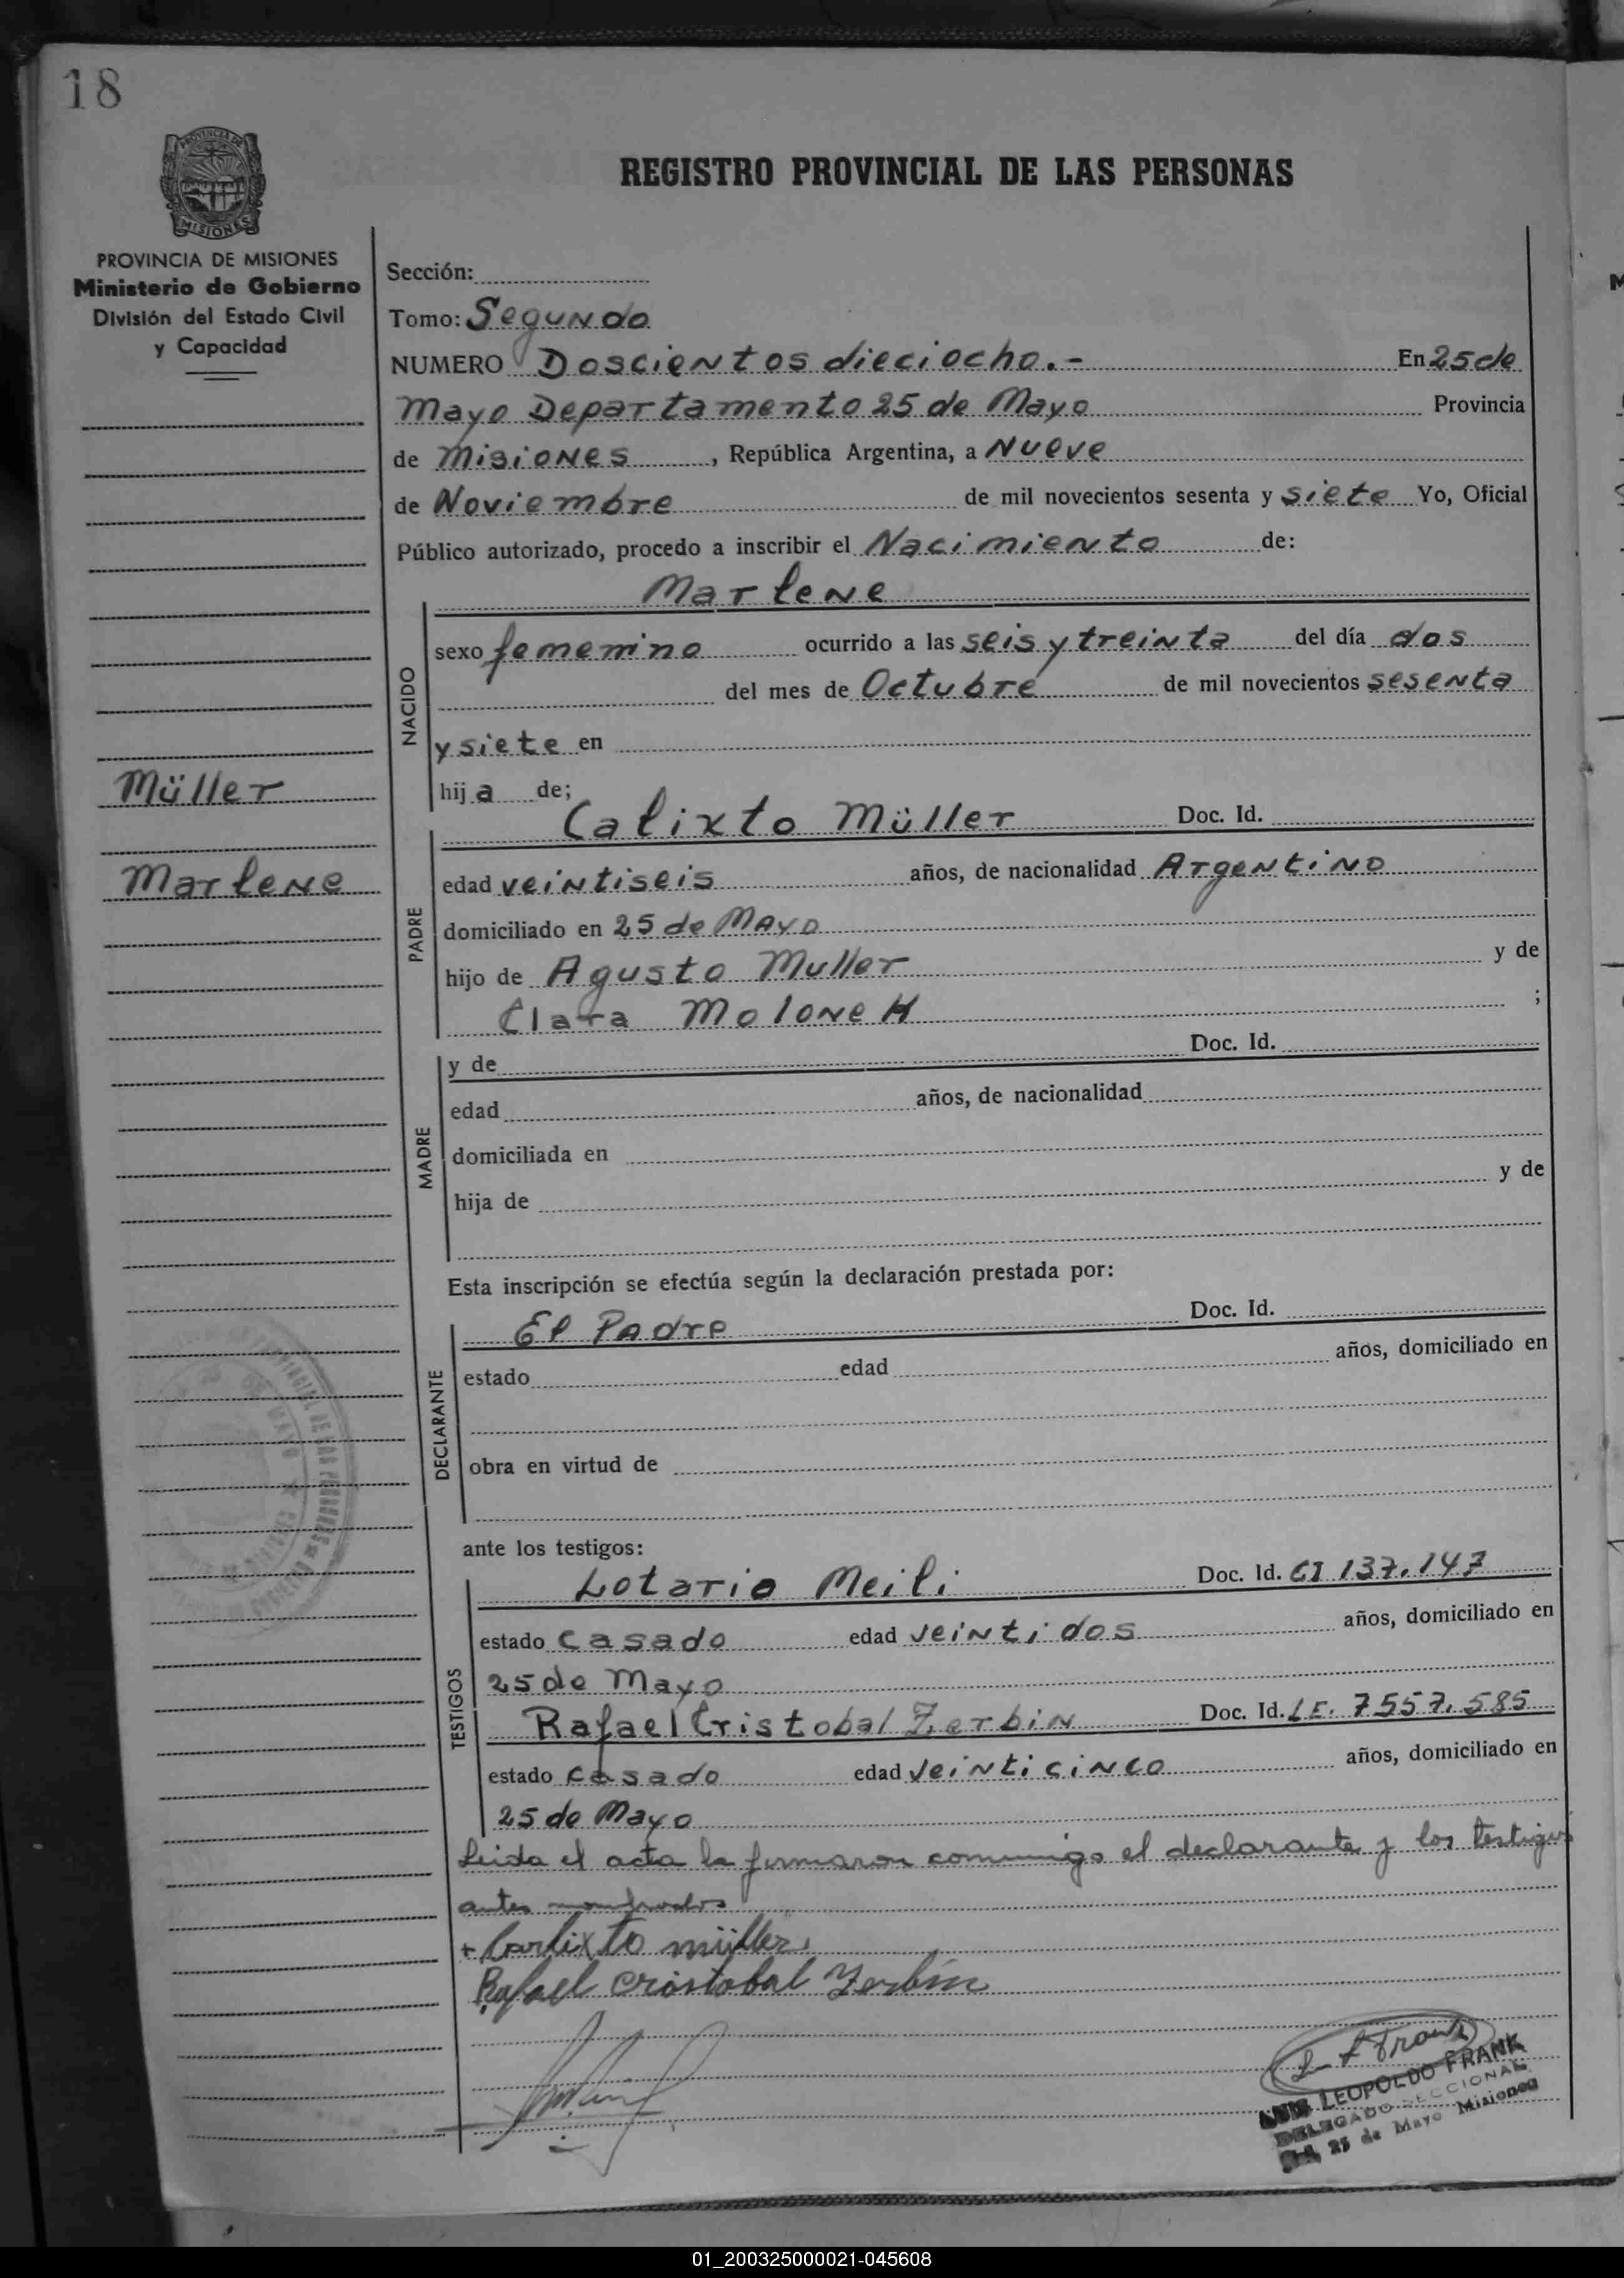 18
PROVINCIA DE
MISIONES
REGISTRO PROVINCIAL DE LAS PERSONAS
PROVINCIA DE MISIONES
Ministerio de Gobierno
División del Estado Civil
y Capacidad
Müller
Marlene
Sección:
Tomo: Segundo
NUMERO Doscientos dieciocho.- En 25 de
Mayo Departamento 25 de Mayo Provincia
de Misiones, República Argentina, a Nueve
de Noviembre de mil novecientos sesenta y siete Yo, Oficial
Público autorizado, procedo a inscribir el Nacimiento de:
Marlene
NACIDO
sexo femenino ocurrido a las seis y treinta del día dos
del mes de Octubre de mil novecientos sesenta
y siete en
hija de;
PADRE
Calixto Müller Doc. Id.
edad veintiseis años, de nacionalidad Argentino
domiciliado en 25 de Mayo
hijo de Agusto Muller y de
Clara Moloneh ;
MADRE
y de Doc. Id.
edad años, de nacionalidad
domiciliada en
hija de y de
Esta inscripción se efectúa según la declaración prestada por:
DECLARANTE
El Padre Doc. Id.
estado edad años, domiciliado en
obra en virtud de
ante los testigos:
TESTIGOS
Lotario Meili Doc. Id. CI 137.147
estado casado edad veintidos años, domiciliado en
25 de Mayo
Rafael Cristobal Zerbin Doc. Id. LE. 7557.585
estado casado edad veinticinco años, domiciliado en
25 de Mayo
Leida el acta la firmaron conmigo el declarante y los testigos
antes nombrados
+ Carlixto müller
Rafael Cristobal Zerbin
LUIS LEOPOLDO FRANK
DELEGADO SECCIONAL
25 de Mayo Misiones
01_200325000021-045608